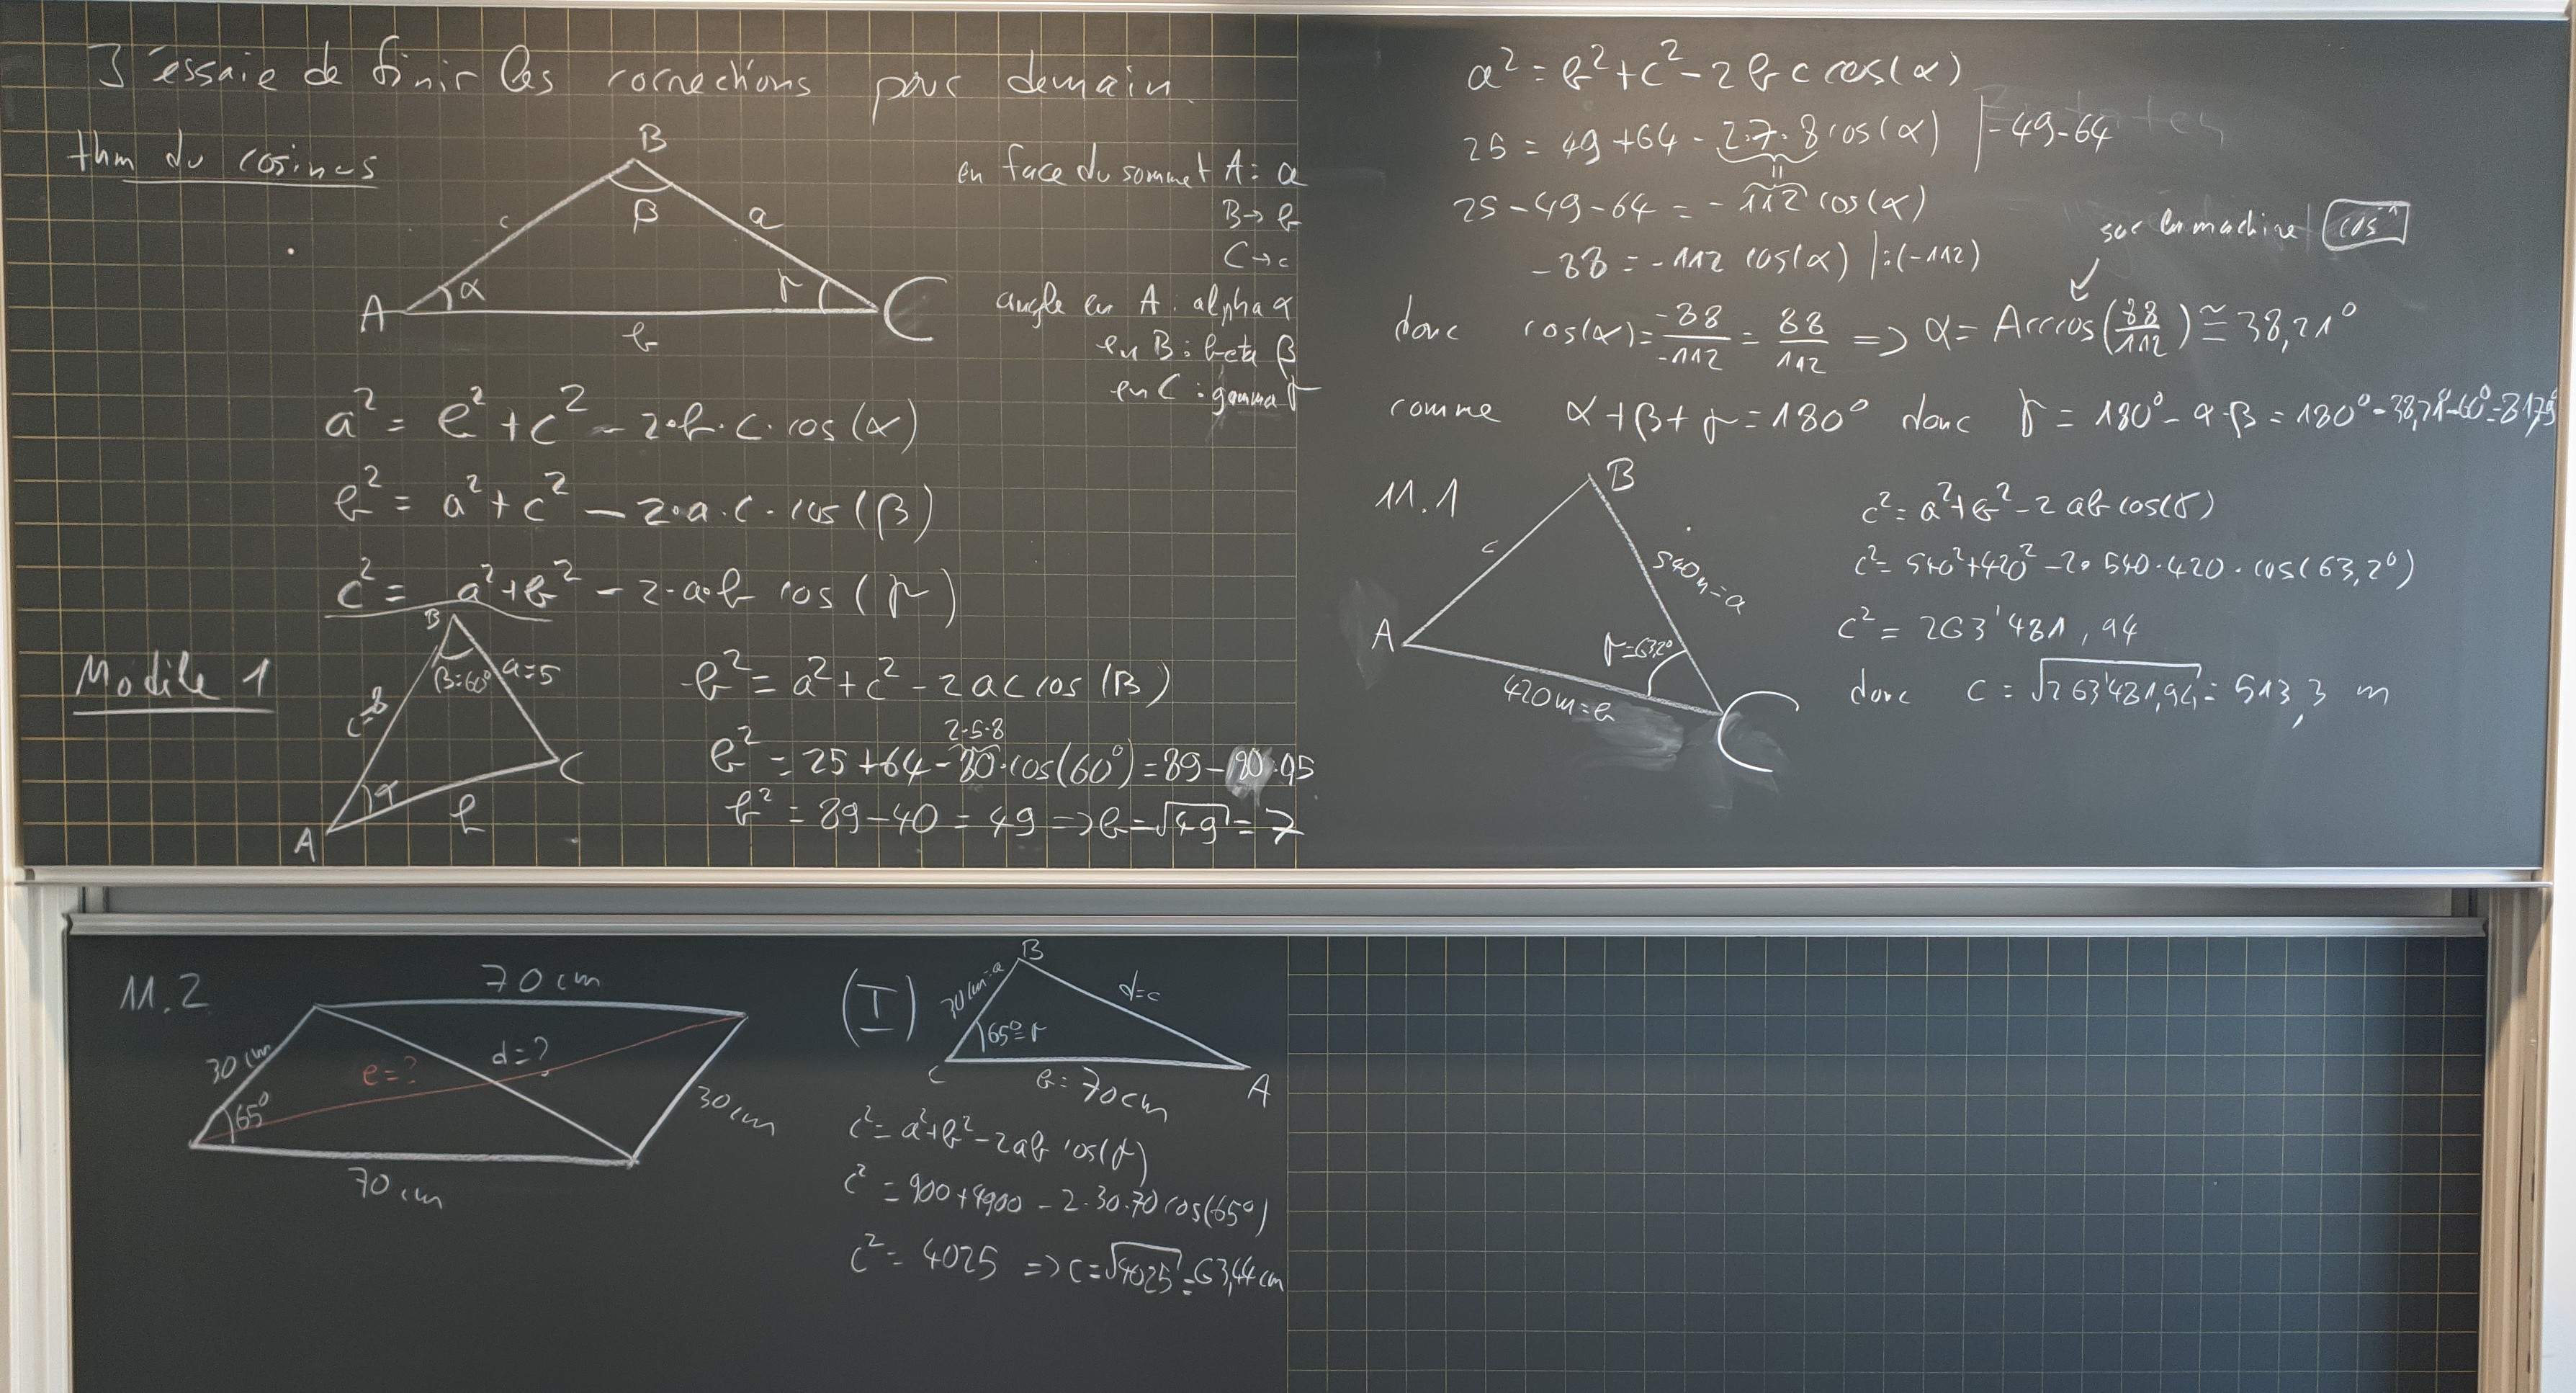 J'essaie de finir les corrections pour demain.
thm du cosinus
B
β
c
a
A
α
γ
C
b
en face du sommet A : a
B → b
C → c
angle en A : alpha α
en B : beta β
en C : gamma γ
a² = b² + c² - 2·b·c·cos(α)
b² = a² + c² - 2·a·c·cos(β)
c² = a² + b² - 2·a·b cos(γ)
Modile 1
B
β=60°
a=5
c=8
C
α
b
A
b² = a² + c² - 2ac cos(β)
2·5·8
b² = 25+64-80·cos(60°) = 89-80·0,5
b² = 89-40 = 49 => b=√49 = 7
a² = b² + c² - 2bc cos(α)
25 = 49+64 - 2·7·8 cos(α) |-49-64
25-49-64 = -112 cos(α)
-88 = -112 cos(α) |:(-112)
sur la machine cos⁻¹
donc cos(α) = -88/-112 = 88/112 => α = Arccos(88/112) ≅ 38,21°
comme α+β+γ = 180° donc γ = 180°-α-β = 180°-38,21°-60°=81,79°
11.1
B
c
540m=a
A
γ=63,2°
420m=b
C
c² = a²+b²-2ab cos(γ)
c² = 540²+420²-2·540·420·cos(63,2°)
c² = 263'481,94
donc c = √263'481,94 = 513,3 m
11.2
70 cm
30 cm
e=?
d=?
65°
30 cm
70 cm
(I)
B
30cm=a
d=c
65°=γ
C
b=70cm
A
c² = a²+b²-2ab cos(γ)
c² = 900+4900-2·30·70 cos(65°)
c² = 4025 => c=√4025 = 63,44 cm